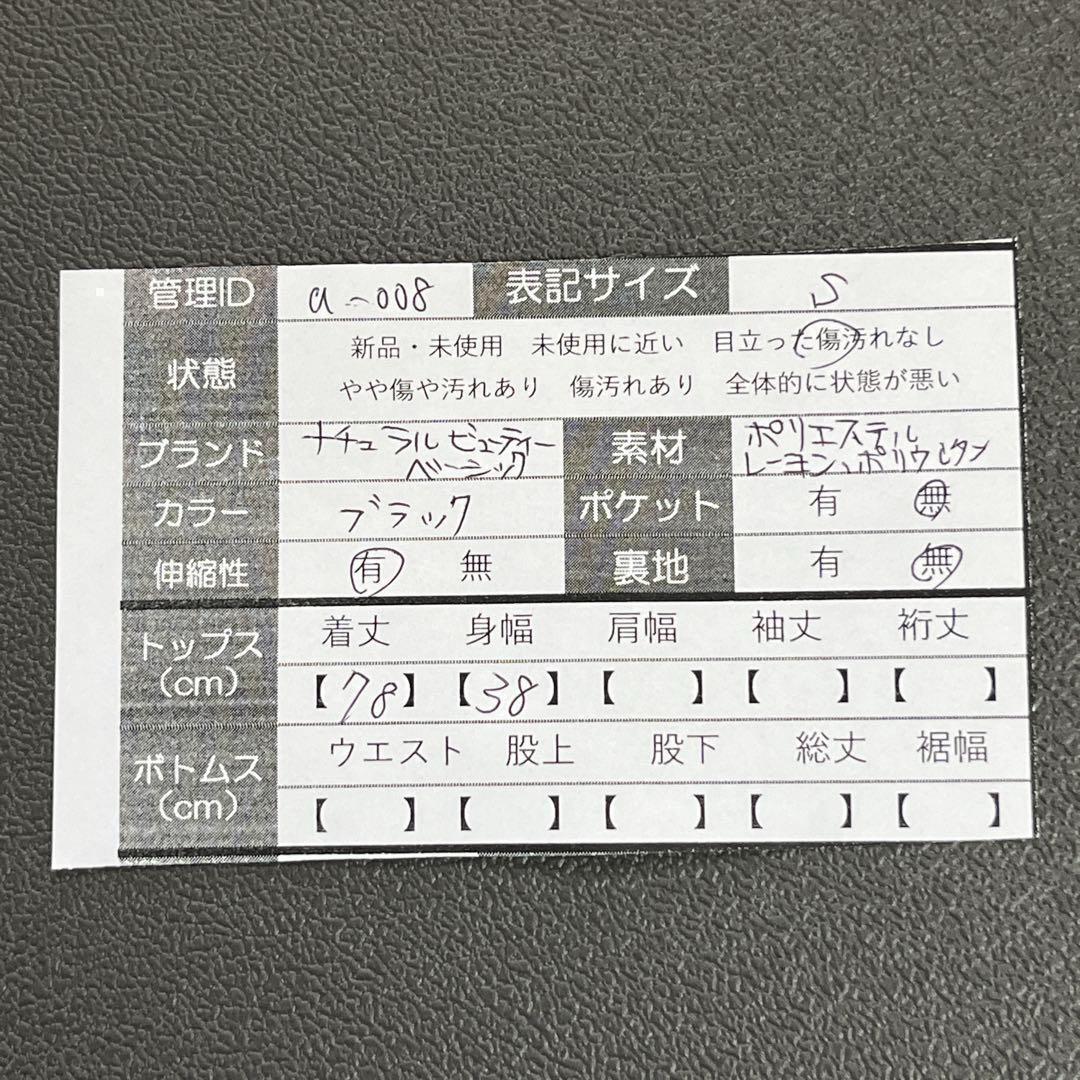 管理ID a-008 表記サイズ S
状態 新品・未使用 未使用に近い 目立った傷汚れなし
やや傷や汚れあり 傷汚れあり 全体的に状態が悪い
ブランド ナチュラルビューティー
ベーシック
素材 ポリエステル
レーヨン、ポリウレタン
カラー ブラック ポケット 有 無
伸縮性 有 無 裏地 有 無
トップス
(cm)
着丈 身幅 肩幅 袖丈 裄丈
【78】 【38】 【 】 【 】 【 】
ボトムス
(cm)
ウエスト 股上 股下 総丈 裾幅
【 】 【 】 【 】 【 】 【 】